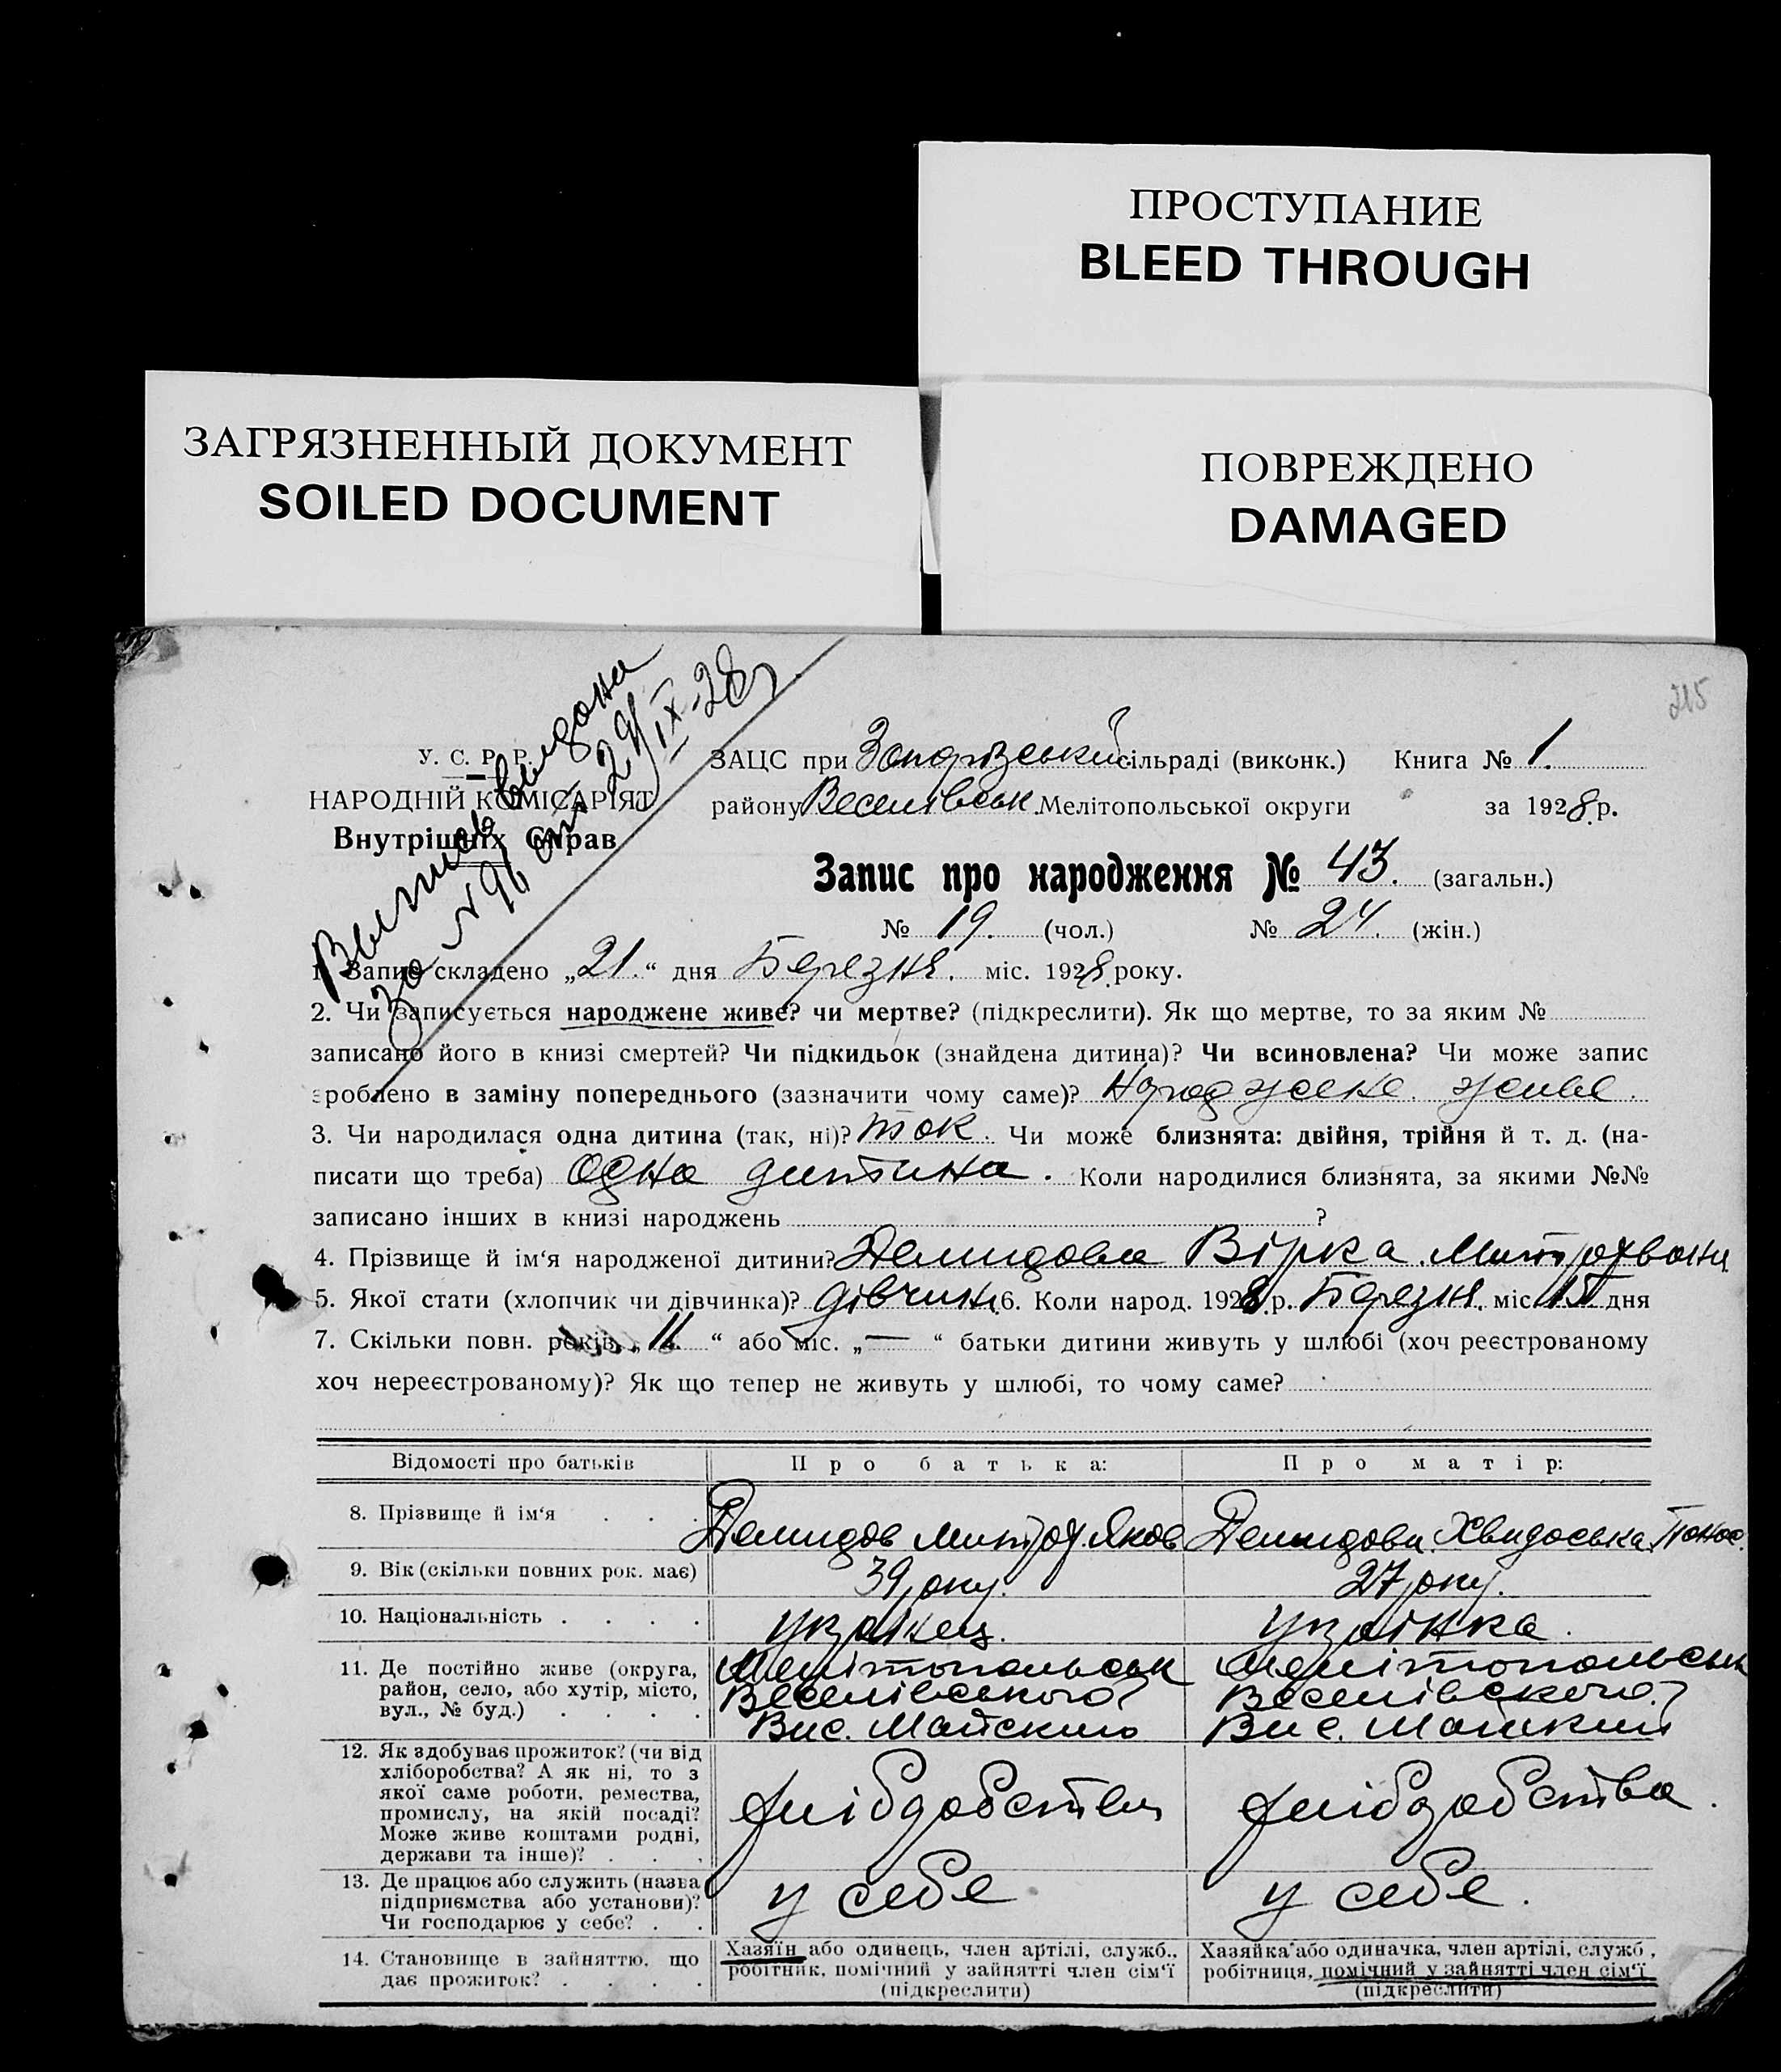 ПРОСТУПАНИЕ
BLEED THROUGH
ЗАГРЯЗНЕННЫЙ ДОКУМЕНТ
SOILED DOCUMENT
ПОВРЕЖДЕНО
DAMAGED
215
Выпись выдана
за №96 от 29/IX-28
У. С. Р. Р.
НАРОДНІЙ КОМІСАРІЯТ
Внутрішніх Справ
ЗАЦС при сільраді (виконк.) Книга № 1.
району Веселівськ. Мелітопольської округи за 1928 р.
Запис про народження № 43. (загальн.)
№ 19. (чол.) № 24. (жін.)
1. Запис складено „21.“ дня Березня. міс. 1928 року.
2. Чи записується народжене живе? чи мертве? (підкреслити). Як що мертве, то за яким №
записано його в книзі смертей? Чи підкидьок (знайдена дитина)? Чи всиновлена? Чи може запис
зроблено в заміну попереднього (зазначити чому саме)? Народжене живе.
3. Чи народилася одна дитина (так, ні)? так. Чи може близнята: двійня, трійня й т. д. (на-
писати що треба) Одна дитина. Коли народилися близнята, за якими №№
записано інших в книзі народжень ?
4. Прізвище й ім‘я народженої дитини? Демидова Вірка Митрохвани
5. Якої стати (хлопчик чи дівчинка)? дівчин. 6. Коли народ. 1928 р. Березня. міс. 15 дня
7. Скільки повн. років „11.“ або міс. „—“ батьки дитини живуть у шлюбі (хоч реєстрованому
хоч нереєстрованому)? Як що тепер не живуть у шлюбі, то чому саме?
Відомості про батьків Про батька: Про матір:
8. Прізвище й ім‘я . . . Демидов Митроф. Яков Демидова Хвидоська Панас.
9. Вік (скільки повних рок. має) 39 року. 27 року.
10. Національність . . . . україиец. українка.
11. Де постійно живе (округа, Мелітопольськ Мелітопольськ
район, село, або хутір, місто, Веселівського Веселівского
вул., № буд.) . . . . Вис. Майский Вис. Майский
12. Як здобуває прожиток? (чи від
хліборобства? А як ні, то з
якої саме роботи, ремества,
промислу, на якій посаді? хлібробства хлібробства.
Може живе коштами родні,
держави та інше)? . . .
13. Де працює або служить (назва
підприємства або установи)? у себе у себе.
Чи господарює у себе? . .
14. Становище в зайняттю, що Хазяїн або одинець, член артілі, служб., Хазяйка або одиначка, член артілі, служб.,
дає прожиток? . . . . робітник, помічний у зайнятті член сім‘ї робітниця, помічний у зайнятті член сім‘ї
(підкреслити) (підкреслити)